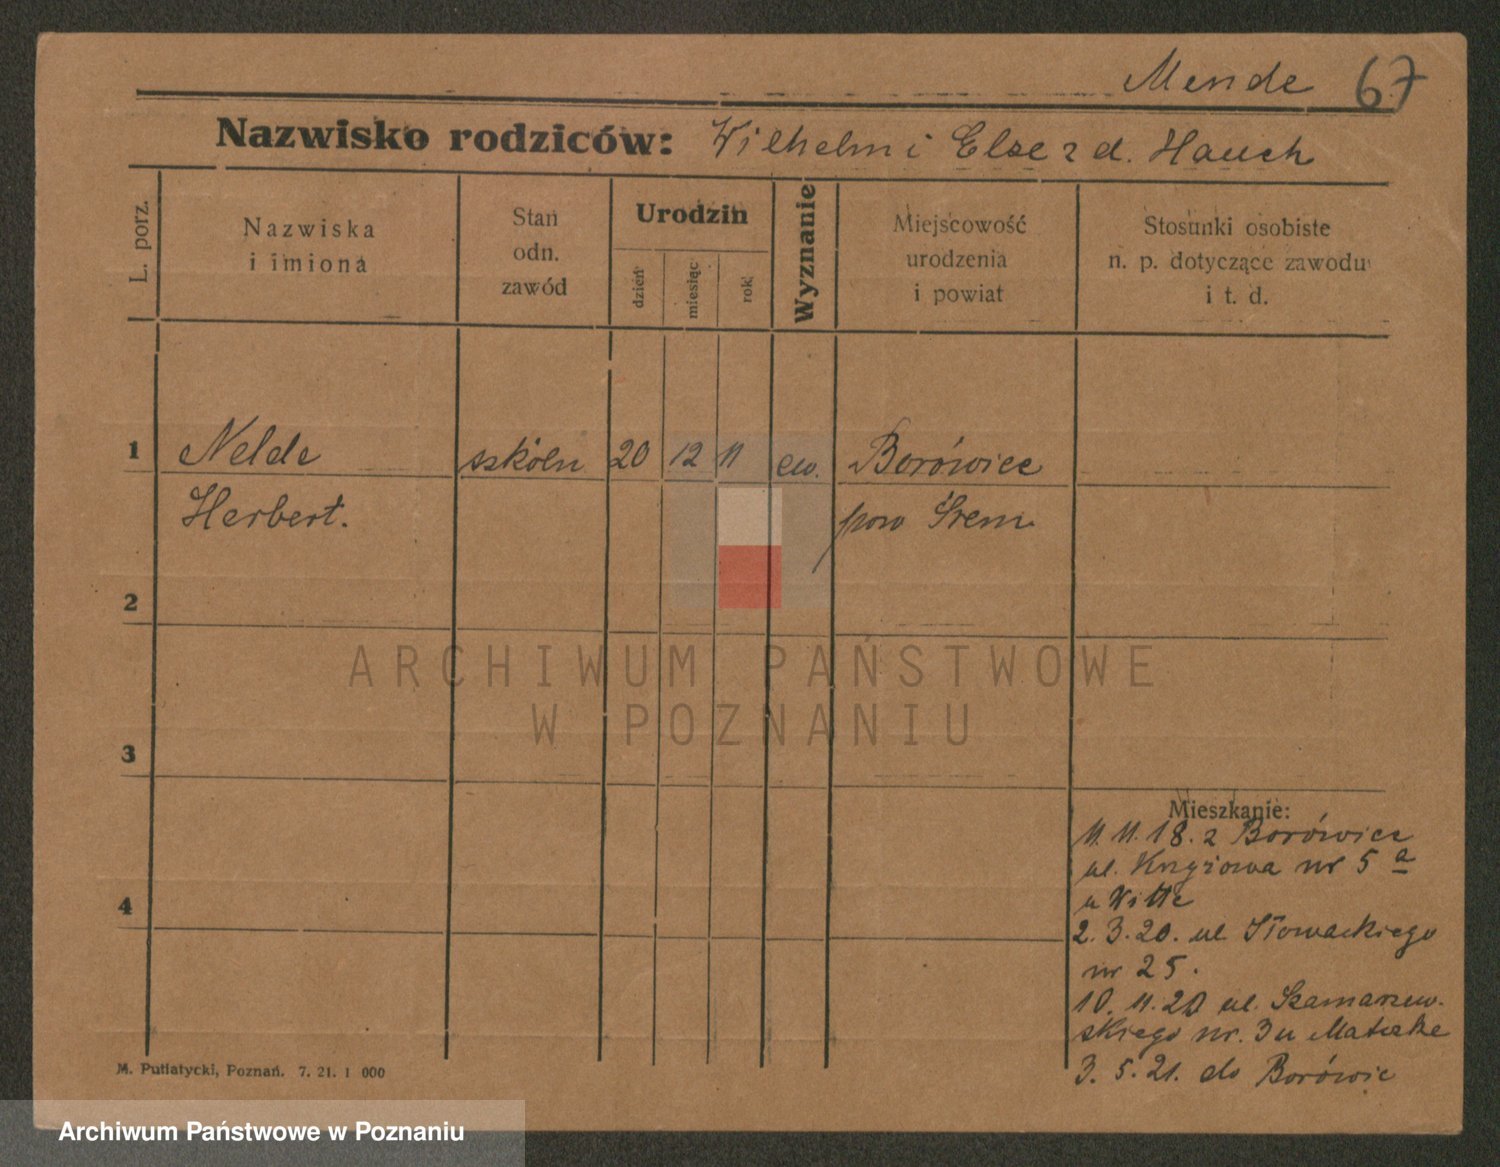 Mende 67
Nazwisko rodziców: Wilhelm i Else z d. Hauch
L. porz.
Nazwiska
i imiona
Stan
odn.
zawód
Urodzin
dzień
miesiąc
rok
Wyznanie
Miejscowość
urodzenia
i powiat
Stosunki osobiste
n. p. dotyczące zawodu
i t. d.
1 Nelde szkoln 20 12 11 ew. Borówiec
Herbert. pow Śrem
2
3
4
Mieszkanie:
11.11.18. z Borówiec
ul. nr 5 a
u Witte
2.3.20. ul. Słowackiego
nr 25.
10.11.20 ul. Szamarzew-
skiego nr. 3 u
3.5.21. do Borówic
M. Putiatycki, Poznań. 7. 21. 1 000
ARCHIWUM PAŃSTWOWE
W POZNANIU
Archiwum Państwowe w Poznaniu